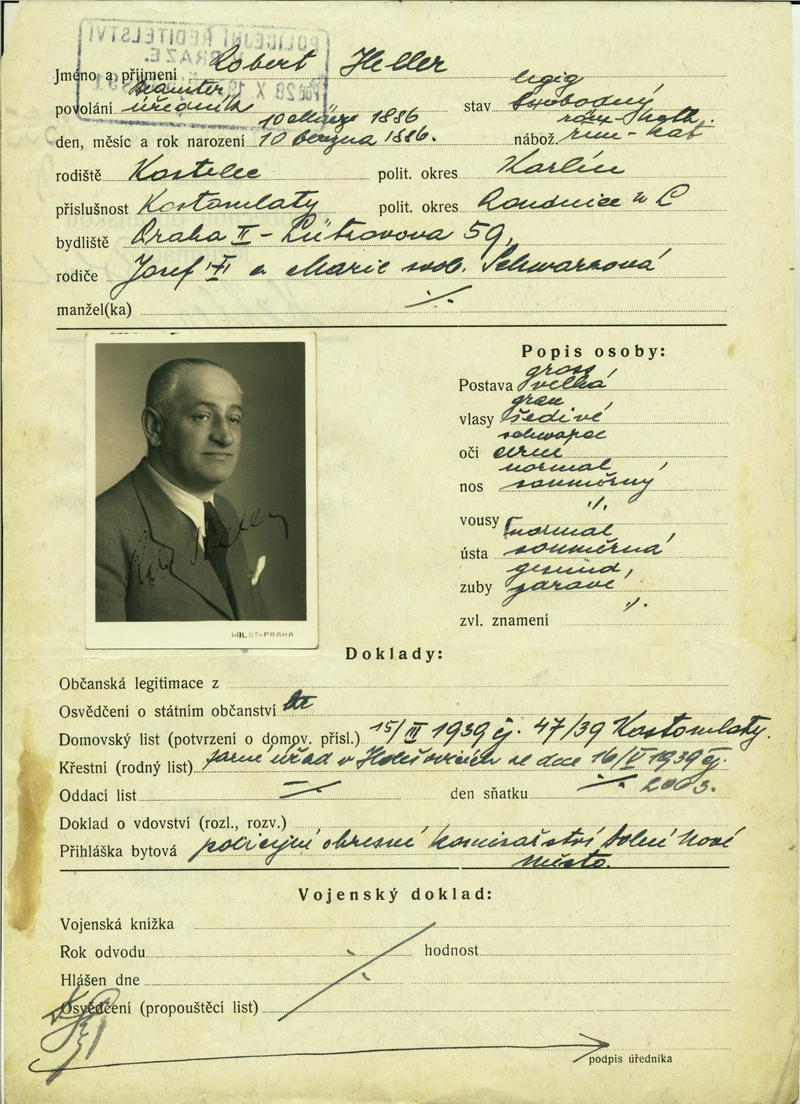 POLICEJNÍ ŘEDITELSTVÍ
V PRAZE.
28 X
Jméno a příjmení Robert Heller
Beamter ledig
povolání úředník stav svobodný
10 März 1886 röm-kath.
den, měsíc a rok narození 10 března 1886. nábož. řím-kat
rodiště Kostelec polit. okres Karlín
příslušnost Kostomlaty polit. okres Roudnice n L
bydliště Praha II - Lützovova 59,
rodiče Josef a Marie roz. Schwarzová
manžel(ka) ·/.
Popis osoby:
gross,
Postava velká
grau,
vlasy šedivé
schwarze
oči černé
normal,
nos souměrný
vousy ·/.
normal,
ústa souměrná
gesund,
zuby zdravé
zvl. znamení ·/.
WILDT-PRAHA
Doklady:
Občanská legitimace z
Osvědčení o státním občanství
Domovský list (potvrzení o domov. přísl.) 15/III 1939 čj. 47/39 Kostomlaty.
Křestní (rodný list) farní úřad v Holešovicích ze dne 16/V 1939 čj.
Oddací list ·/. den sňatku ·/. 2003.
Doklad o vdovství (rozl., rozv.)
Přihláška bytová policejní okresní komisařství Dolní Nové
Město.
Vojenský doklad:
Vojenská knížka
Rok odvodu hodnost
Hlášen dne
Osvědčení (propouštěcí list)
podpis úředníka